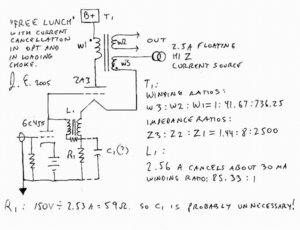 "FREE LUNCH"
WITH CURRENT
CANCELLATION
IN OPT AND
IN LOADING
CHOKE.
J.E. 2005
B+
T1
W1
W2
W3
OUT
2.5A FLOATING
HI Z
CURRENT SOURCE
2A3
6C45π
L1
R1
C1(?)
T1:
WINDING RATIOS:
W3:W2:W1=1:41.67:736.25
IMPEDANCE RATIOS:
Z3:Z2:Z1=1.44:8:2500
L1:
2.56 A CANCELS ABOUT 30 MA
WINDING RATIO: 85.33:1
R1: 150V÷2.53A=59Ω. SO C1 IS PROBABLY UNNECESSARY!